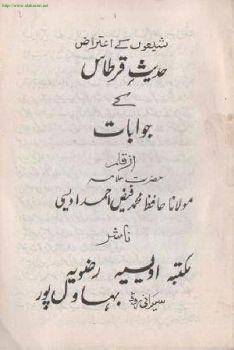 شیعوں کے اعتراض
حدیث قرطاس
کے
جوابات
از قلم
حضرت علامہ
مولانا حافظ محمد فیض احمد اویسی
ناشر
مکتبہ اویسیہ رضویہ
سیرانی روڈ بہاولپور